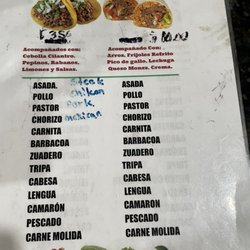 Acompañados con: Acompañados con:
Cebolla Cilantro, Arros, Frijoles Refrito
Pepinos, Rabanos, Pico de gallo, Lechuga
Limones y Salsas. Queso Monts, Crema.
ASADA steak ASADA
POLLO chiken POLLO
PASTOR Pork PASTOR
CHORIZO mexican CHORIZO
CARNITA CARNITA
BARBACOA BARBACOA
ZUADERO ZUADERO
TRIPA TRIPA
CABESA CABESA
LENGUA LENGUA
CAMARÓN CAMARÓN
PESCADO PESCADO
CARNE MOLIDA CARNE MOLIDA